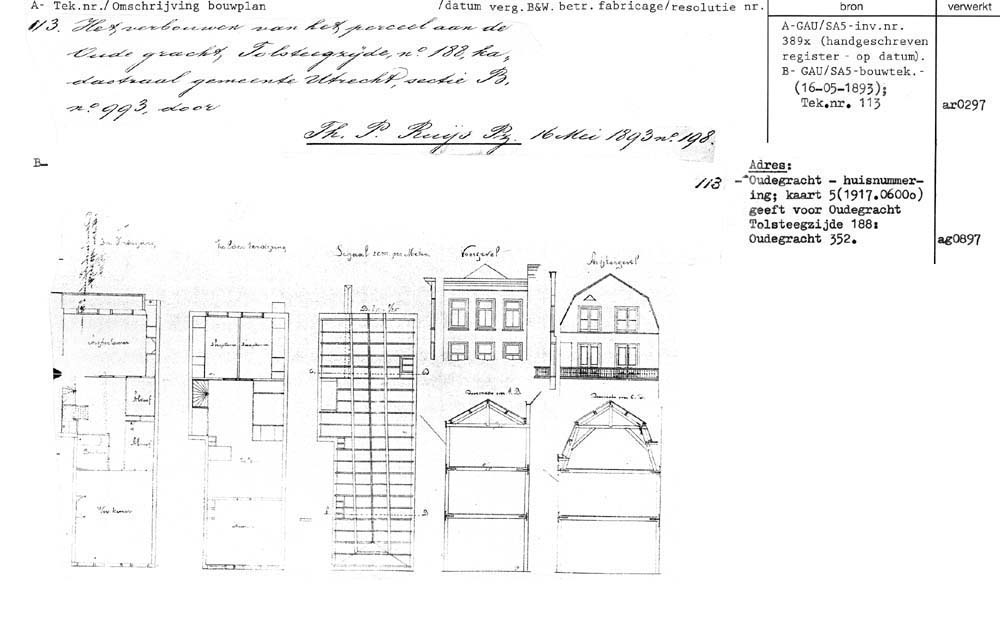 A- Tek.nr./Omschrijving bouwplan /datum verg.B&W.betr.fabricage/resolutie nr. bron verwerkt
113. Het verbouwen van het perceel aan de
Oude gracht, Tolsteegzijde, no 188, ka-
dastraal gemeente Utrecht, sectie B.
no. 993, door
Th. P. Ruijs Pz. 16 Mei 1893 no. 198.
A-GAU/SA5-inv.nr.
389x (handgeschreven
register - op datum).
B- GAU/SA5-bouwtek.-
(16-05-1893);
Tek.nr. 113
ar0297
B-
113
Adres:
-"Oudegracht - huisnummer-
ing; kaart 5(1917.0600o)
geeft voor Oudegracht
Tolsteegzijde 188:
Oudegracht 352.
ag0897
Schaal 2 c.M. per Meter
Voorgevel
Doorsnede over A.B.
Doorsnede over C.D.